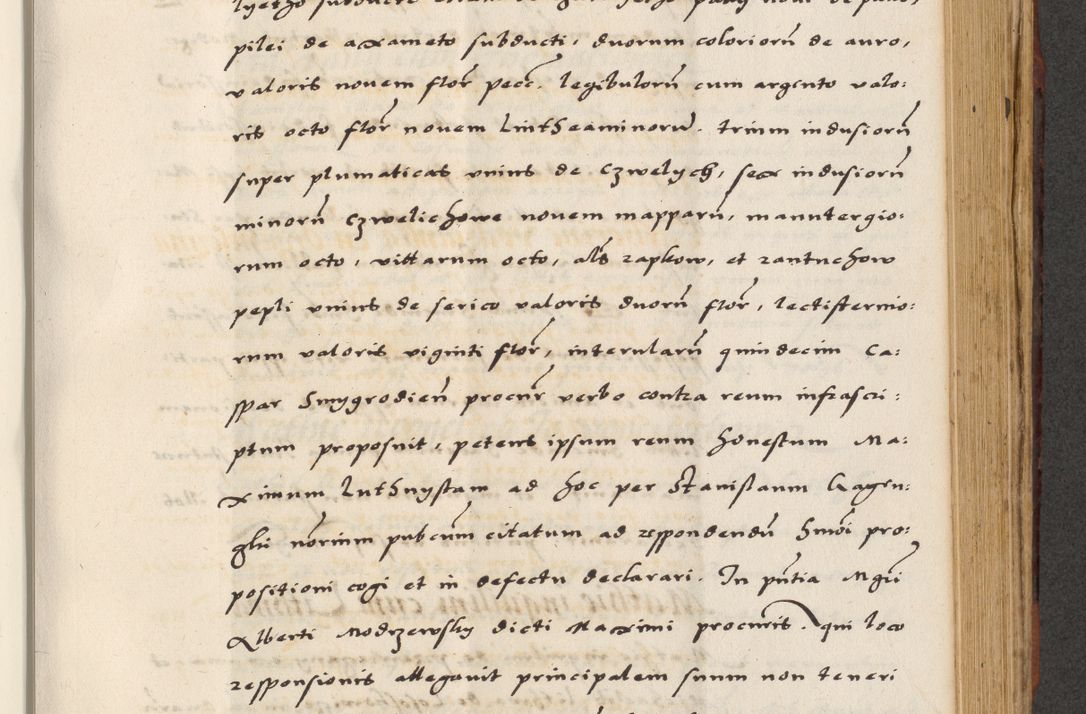 pilei de axameto subducti, duorum coloriorũ de auro,
valoris novem flor̃ pecc̃. legibulorũ cum argento valo:
ris octo flor̃ novem Lintheaminorũ. trium indusiorũ
super plumaticas unius de Czwelych, sex indusiorũ
minorũ Czwelichowe novem mapparũ, manutergio:
rum octo, vittarum octo, als̃ rapkow, et rantuchow
pepli unius de serico valoris duorũ flor̃, lectisternio:
rum valoris viginti flor̃, interularũ quindecim Ca:
spar Smygrodieñ procur̃ verbo contra reum infrascri:
ptum proposuit, petens ipsum reum honestum Ma:
ximum Luthnystam ad hoc per Stanislaum
nõrium pubcum̃ citatum ad respondendũ hm̃oi pro:
positioni cogi et in defectu declarari. In pñtia Mgr̃i
Alberti Modrzewsky dicti Maximi procuris. qui loco
responsionis allegavit principalem suum non teneri